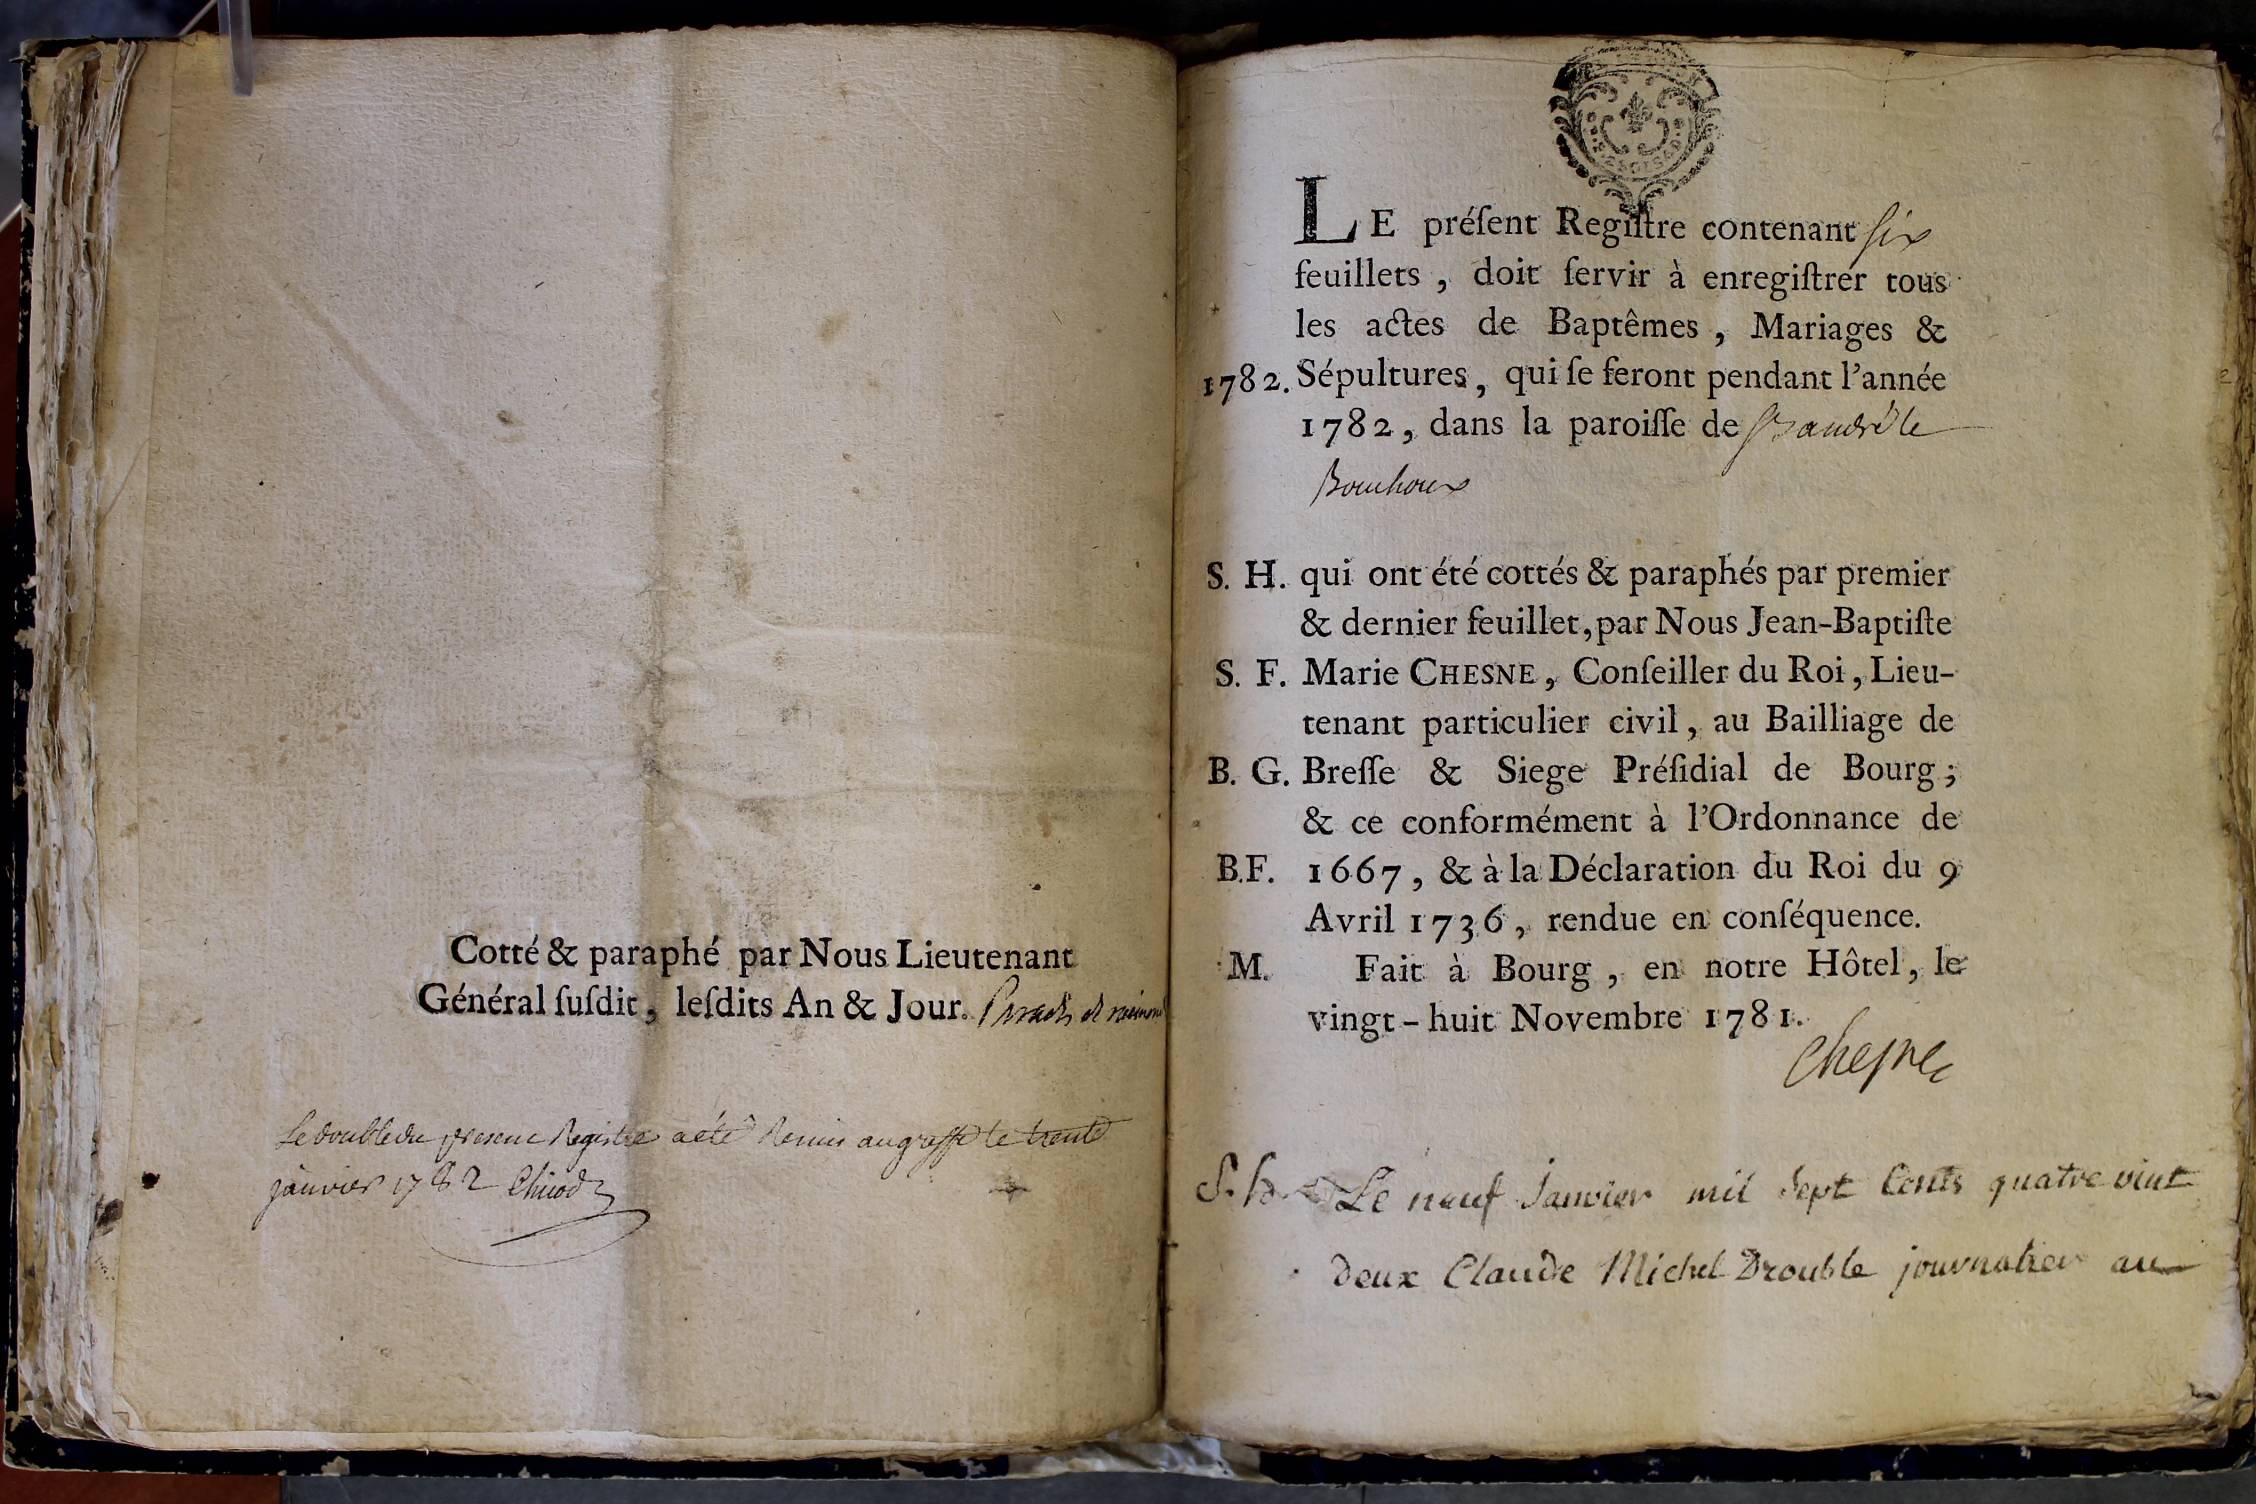 Cotté & paraphé par Nous Lieutenant
Général ſuſdit, leſdits An & Jour.
Le double du present Registre a été Remis au greffe le trente
janvier 1782
LE préſent Regiſtre contenant six
feuillets, doit ſervir à enregiſtrer tous
les actes de Baptêmes, Mariages &
1782. Sépultures, qui ſe feront pendant l'année
1782, dans la paroiſſe de St andré le
Bouchoux
S. H. qui ont été cottés & paraphés par premier
& dernier feuillet, par Nous Jean-Baptiſte
S. F. Marie CHESNE, Conſeiller du Roi, Lieu-
tenant particulier civil, au Bailliage de
B. G. Breſſe & Siege Préſidial de Bourg;
& ce conformément à l'Ordonnance de
B.F. 1667, & à la Déclaration du Roi du 9
Avril 1736, rendue en conſéquence.
M. Fait à Bourg, en notre Hôtel, le
vingt-huit Novembre 1781.
Chesne
S. h. Le neuf Janvier mil Sept Cents quatre vint
deux Claude Michel Drouble journalier au